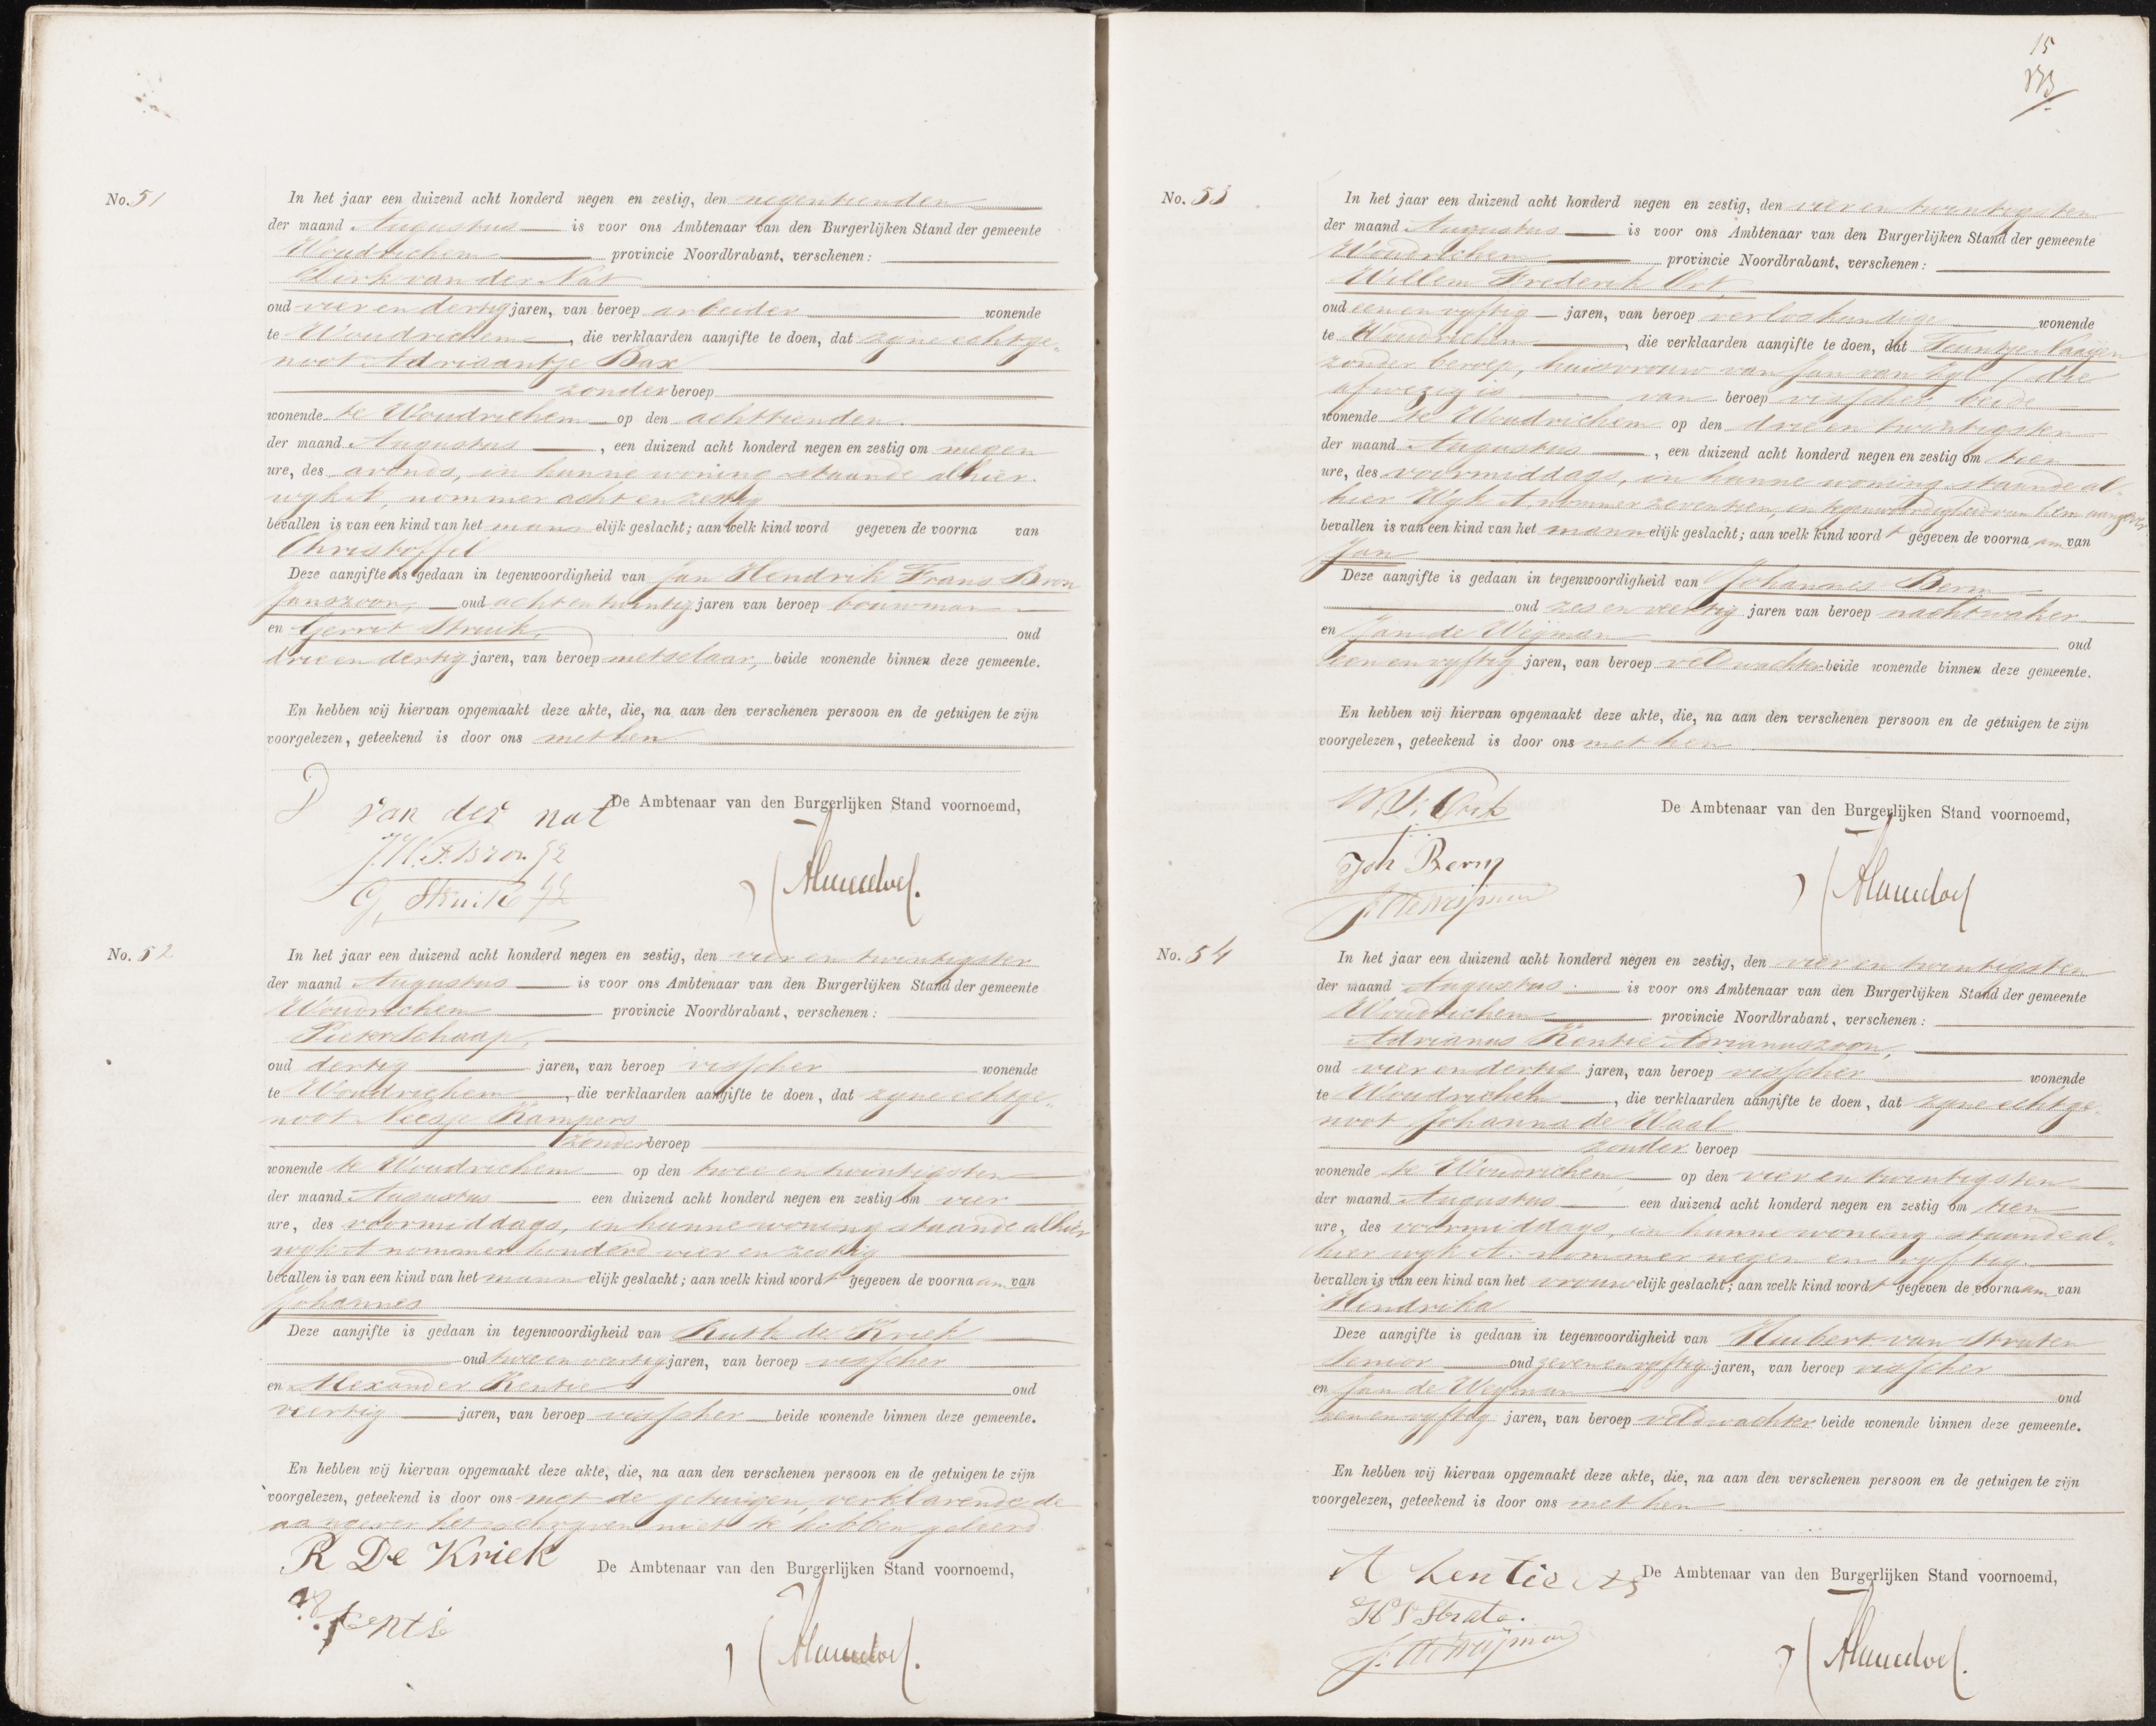 No. 51
In het jaar een duizend acht honderd negen en zestig, den negentienden
der maand Augustus is voor ons Ambtenaar van den Burgerlijken Stand der gemeente
Woudrichem provincie Noordbrabant, verschenen:
Dirk van der Nat
oud vier en dertig jaren, van beroep arbeider wonende
te Woudrichem, die verklaarden aangifte te doen, dat zyne echtge-
noot Adriaantje Bax
zonder beroep
wonende te Woudrichem op den achttienden
der maand Augustus, een duizend acht honderd negen en zestig om negen
ure, des avonds, in hunne woning staande alhier
wyk A, nommer acht en zestig
bevallen is van een kind van het mann elijk geslacht; aan welk kind word gegeven de voorna van
Christoffel
Deze aangifte is gedaan in tegenwoordigheid van Jan Hendrik Frans Bron
Janszoon, oud acht en twintig jaren van beroep bouwman
en Gerrit Struik, oud
drie en dertig jaren, van beroep metselaar, beide wonende binnen deze gemeente.
En hebben wij hiervan opgemaakt deze akte, die, na aan den verschenen persoon en de getuigen te zijn
voorgelezen, geteekend is door ons met hen
D van der nat
De Ambtenaar van den Burgerlijken Stand voornoemd,
J.H.F. Bron
G, Struik
No. 52
In het jaar een duizend acht honderd negen en zestig, den vier en twintigsten
der maand Augustus is voor ons Ambtenaar van den Burgerlijken Stand der gemeente
Woudrichem provincie Noordbrabant, verschenen:
Pieter Schaap,
oud dertig jaren, van beroep visscher wonende
te Woudrichem, die verklaarden aangifte te doen, dat zyne echtge-
noot Neesje Kampers
zonder beroep
wonende te Woudrichem op den twee en twintigsten
der maand Augustus een duizend acht honderd negen en zestig om vier
ure, des voormiddags, in hunne woning staande alhier
wyk A nommer honderd vier en zestig
bevallen is van een kind van het mann elijk geslacht; aan welk kind wordt gegeven de voornaam van
Johannes
Deze aangifte is gedaan in tegenwoordigheid van Ruth de Kriek
oud twee en veertig jaren, van beroep visscher
en Alexander Kentie oud
veertig jaren, van beroep visscher beide wonende binnen deze gemeente.
En hebben wij hiervan opgemaakt deze akte, die, na aan den verschenen persoon en de getuigen te zijn
voorgelezen, geteekend is door ons met de getuigen, verklarende de
aangever het schryven niet te hebben geleerd.
R De Kriek
De Ambtenaar van den Burgerlijken Stand voornoemd,
Kentie
15
No. 53
In het jaar een duizend acht honderd negen en zestig, den vier en twintigsten
der maand Augustus is voor ons Ambtenaar van den Burgerlijken Stand der gemeente
Woudrichem provincie Noordbrabant, verschenen:
Willem Frederik Ort,
oud een en vyftig jaren, van beroep verloskundige wonende
te Woudrichem, die verklaarden aangifte te doen, dat Teuntje Naaijen
zonder beroep, huisvrouw van Jan van Zyl / die
afwezig is van beroep visscher beide
wonende te Woudrichem op den drie en twintigsten
der maand Augustus, een duizend acht honderd negen en zestig om tien
ure, des voormiddags, in hunne woning staande al-
hier Wyk A, nommer zeventien, in tegenwoordigheid van hem aangever
bevallen is van een kind van het mann elijk geslacht; aan welk kind wordt gegeven de voornaam van
Jan
Deze aangifte is gedaan in tegenwoordigheid van Johannes Berm
oud zes en veertig jaren van beroep nachtwaker
en Jan de Weijman oud
een en vyftig jaren, van beroep veldwachter beide wonende binnen deze gemeente.
En hebben wij hiervan opgemaakt deze akte, die, na aan den verschenen persoon en de getuigen te zijn
voorgelezen, geteekend is door ons met hen
De Ambtenaar van den Burgerlijken Stand voornoemd,
Joh Berm
No. 54
In het jaar een duizend acht honderd negen en zestig, den vier en twintigsten
der maand Augustus is voor ons Ambtenaar van den Burgerlijken Stand der gemeente
Woudrichem provincie Noordbrabant, verschenen:
Adrianus Kentie Adrianuszoon,
oud vier en dertig jaren, van beroep visscher wonende
te Woudrichem, die verklaarden aangifte te doen, dat zyne echtge-
noot Johanna de Waal
zonder beroep
wonende te Woudrichem op den vier en twintigsten
der maand Augustus een duizend acht honderd negen en zestig om tien
ure, des voormiddags, in hunne woning staande al-
hier wyk A. nommer negen en vyftig.
bevallen is van een kind van het vrouw elijk geslacht; aan welk kind wordt gegeven de voornaam van
Hendrika
Deze aangifte is gedaan in tegenwoordigheid van Huibert van Straten
Senior oud zeven en vyftig jaren, van beroep visscher
en Jan de Weyman oud
een en vyftig jaren, van beroep veldwachter beide wonende binnen deze gemeente.
En hebben wij hiervan opgemaakt deze akte, die, na aan den verschenen persoon en de getuigen te zijn
voorgelezen, geteekend is door ons met hen
A kentie Az
De Ambtenaar van den Burgerlijken Stand voornoemd,